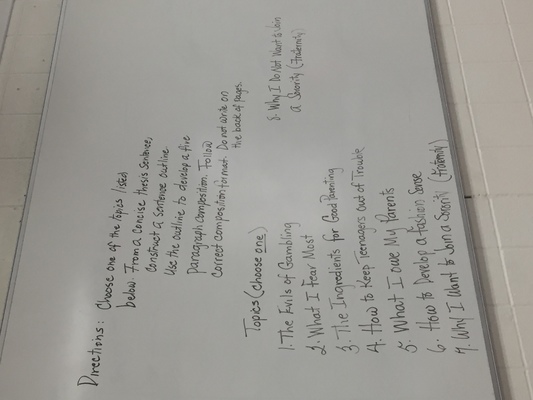 Directions: Choose one of the topics listed
below. From a concise thesis sentence,
construct a sentence outline.
Use the outline to develop a five
paragraph composition. Follow
correct composition format. Do not write on
the back of pages.
Topics (choose one)
1. The Evils of Gambling
2. What I Fear Most
3. The Ingredients for Good Parenting
4. How to Keep Teenagers Out of Trouble
5. What I owe My Parents
6. How to Develop a Fashion Sense
7. Why I Want to Join a Sorority (Fraternity)
8. Why I Do Not Want to Join
a Sorority (Fraternity)